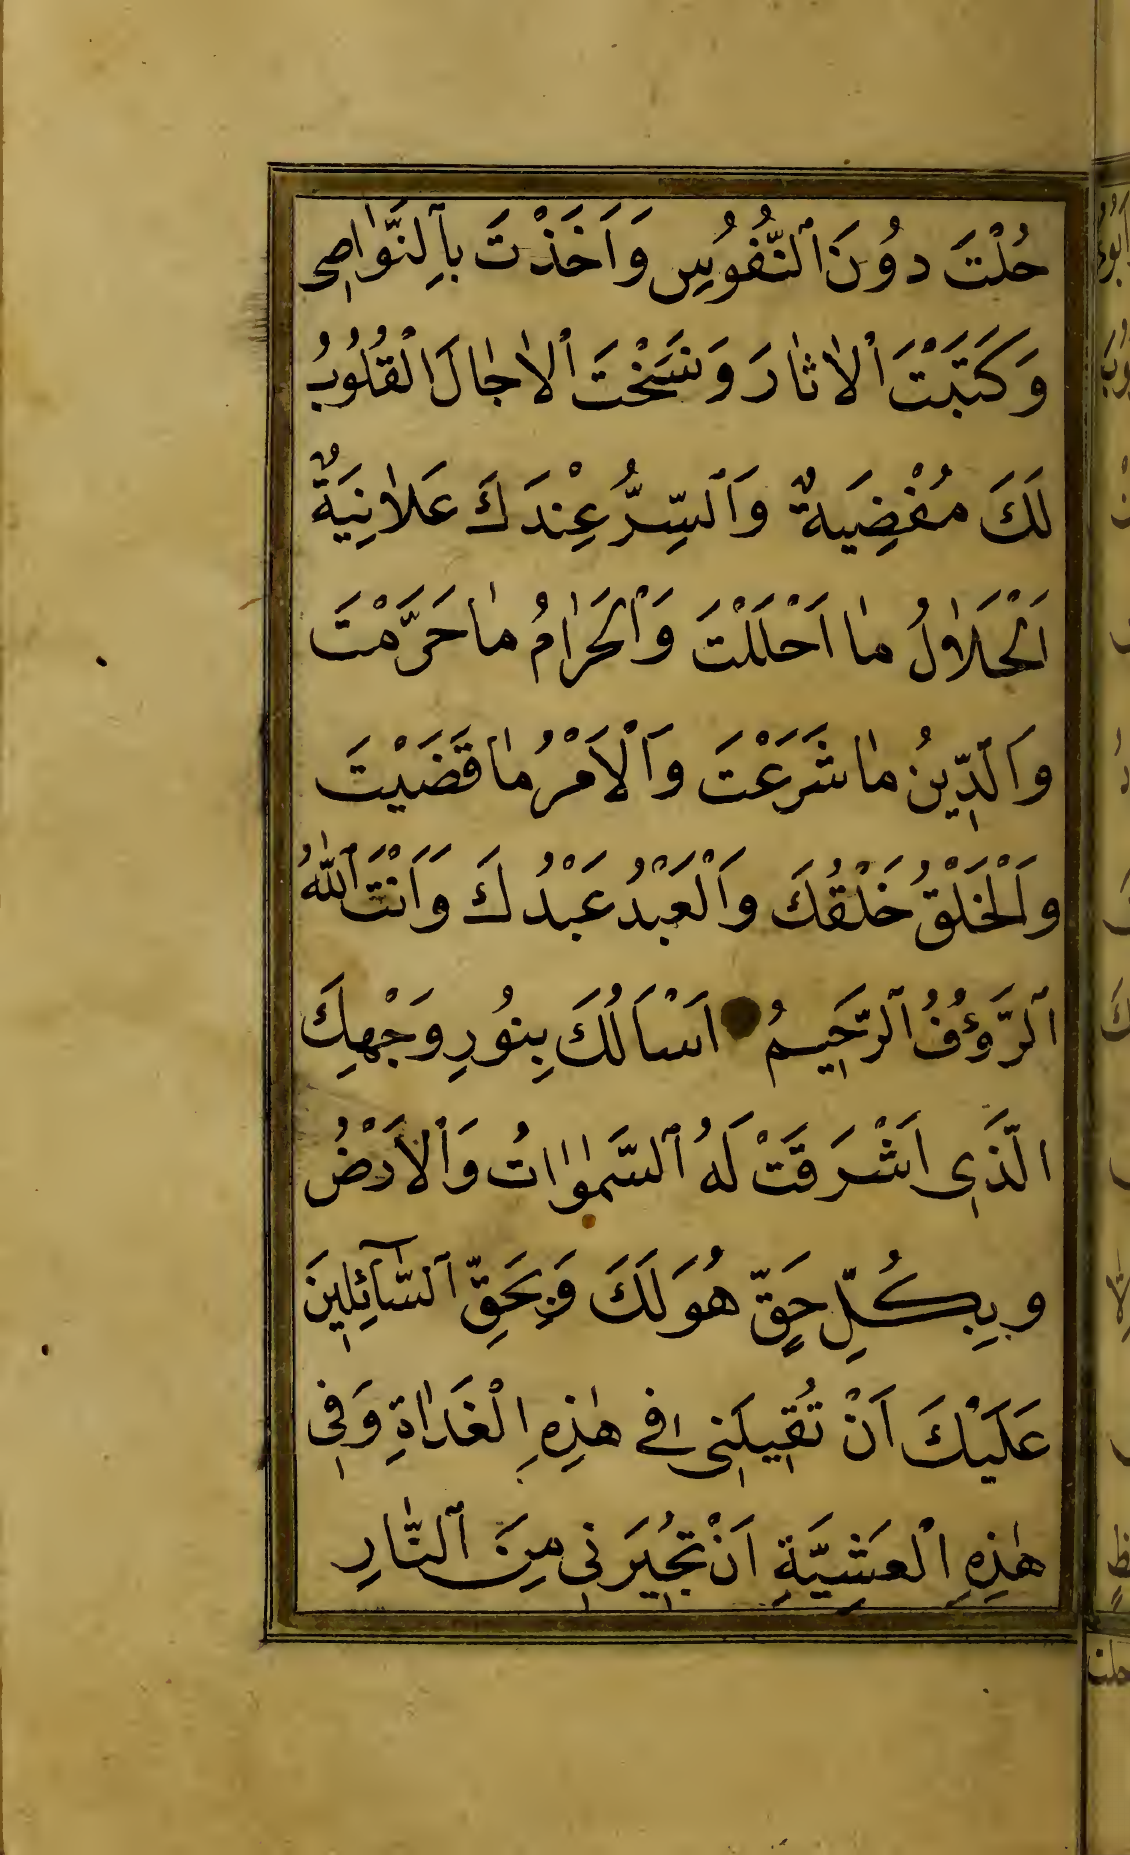 حُلْتَ دُونَ ٱلنُّفُوسِ وَاَخَذْتَ بِٱلنَّوٰاصِى
وَكَتَبْتَ ٱلْاٰثٰارَ وَنَسَخْتَ ٱلْاٰجٰالَ الْقُلُوبُ
لَكَ مُفْضِيَةٌ وَٱلسِّرُّ عِنْدَكَ عَلاٰنِيَةٌ
اَلْحَلاٰلُ مٰا اَحْلَلْتَ وَٱلْحَرٰامُ مٰا حَرَّمْتَ
وَٱلدِّينُ مٰا شَرَعْتَ وَٱلْاَمْرُ مٰا قَضَيْتَ
وَٱلْخَلْقُ خَلْقُكَ وَٱلْعَبْدُ عَبْدُكَ وَاَنْتَ ٱللّٰهُ
ٱلرَّؤُفُ ٱلرَّحِيمُ اَسْاَلُكَ بِنُورِ وَجْهِكَ
الَّذَى اَشْرَقَتْ لَهُ ٱلسَّمٰوٰاتُ وَٱلْاَرْضُ
وبِكُلِّ حَقٍّ هُوَ لَكَ وَبِحَقِّ ٱلسّٰآئِلِينَ
عَلَيْكَ اَنْ تُقِيلَنِى فِى هٰذِهِ الْغَدٰاةِ وَفِى
هٰذِهِ الْعَشِيَّةِ اَنْ تُجِيَرَنِى مِنَ ٱلنّٰارِ